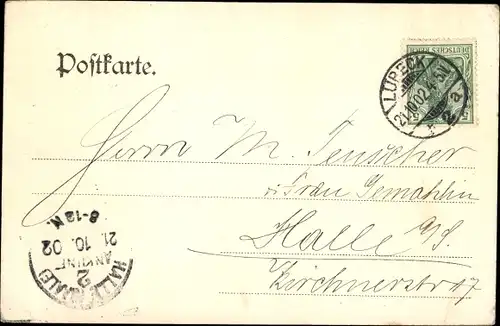 Postkarte.
DEUTSCHES REICH
LÜBECK
21.10.02. 4-5N.
2 a.
Herrn M. Teuscher
u. Frau Gemahlin
Halle a/S.
Kirchnerstr.
8-12 N.
21. 10. 02
ANKUNFT
2
HALLE (SAALE)